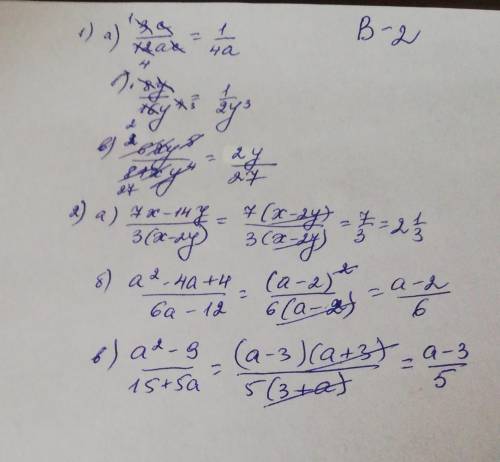 В-2
1) а) 3a/12aa = 1/4a
б) 8y/16y = 1/2y³
в) = 2y/27
2) а) 7x-14y/3(x-2y) = 7(x-2y)/3(x-2y) = 7/3 = 2 1/3
б) a²-4a+4/6a-12 = (a-2)²/6(a-2) = a-2/6
в) a²-9/15+5a = (a-3)(a+3)/5(3+a) = a-3/5